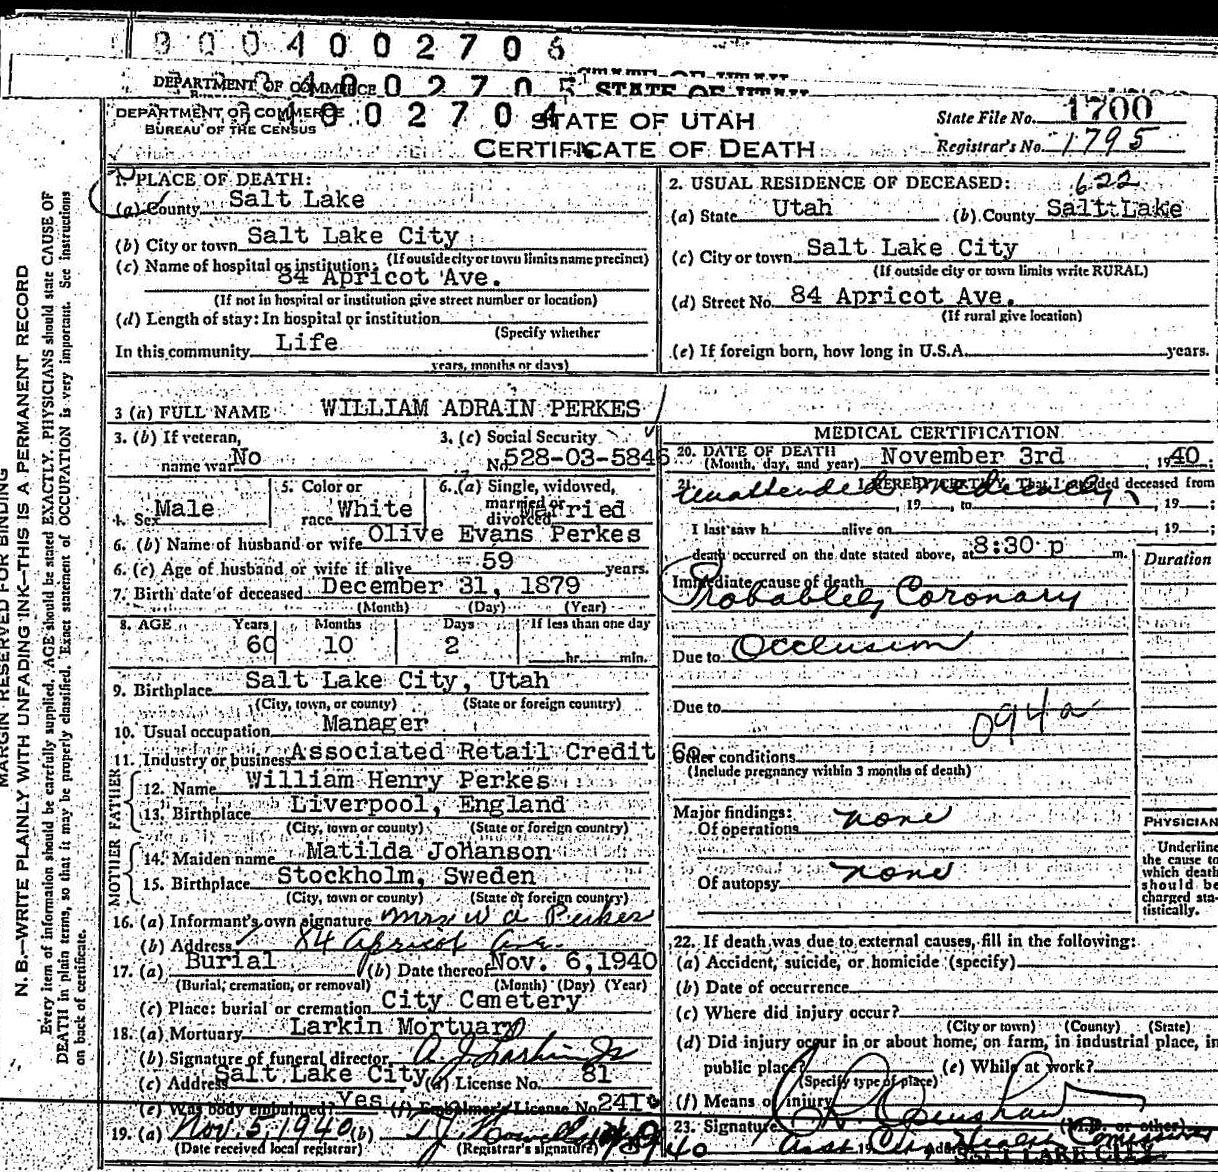 0004002706
STATE OF UTAH
DEPARTMENT OF COMMERCE 4002705 STATE OF UTAH
DEPARTMENT OF COMMERCE 4002704 STATE OF UTAH
BUREAU OF THE CENSUS
State File No. 1700
CERTIFICATE OF DEATH
Registrar's No. 1795
MARGIN RESERVED FOR BINDING
N. B.—WRITE PLAINLY WITH UNFADING INK—THIS IS A PERMANENT RECORD
Every item of information should be carefully supplied. AGE should be stated EXACTLY. PHYSICIANS should state CAUSE OF
DEATH in plain terms, so that it may be properly classified. Exact statement of OCCUPATION is very important. See instructions
on back of certificate.
1. PLACE OF DEATH:
(a) County Salt Lake
(b) City or town Salt Lake City
(If outside city or town limits name precinct)
(c) Name of hospital or institution:
84 Apricot Ave.
(If not in hospital or institution give street number or location)
(d) Length of stay: In hospital or institution
(Specify whether
In this community Life
years, months or days)
2. USUAL RESIDENCE OF DECEASED: 622
(a) State Utah (b) County Salt Lake
(c) City or town Salt Lake City
(If outside city or town limits write RURAL)
(d) Street No. 84 Apricot Ave.
(If rural give location)
(e) If foreign born, how long in U.S.A. years.
3 (a) FULL NAME WILLIAM ADRAIN PERKES
3. (b) If veteran, name war No
3. (c) Social Security No. 528-03-5846
4. Sex Male
5. Color or race White
6. (a) Single, widowed, married or divorced Married
6. (b) Name of husband or wife Olive Evans Perkes
6. (c) Age of husband or wife if alive 59 years.
7. Birth date of deceased December 31, 1879
(Month) (Day) (Year)
8. AGE Years Months Days If less than one day
60 10 2 hr. min.
9. Birthplace Salt Lake City, Utah
(City, town, or county) (State or foreign country)
10. Usual occupation Manager
11. Industry or business Associated Retail Credit Co.
FATHER
12. Name William Henry Perkes
13. Birthplace Liverpool, England
(City, town or county) (State or foreign country)
MOTHER
14. Maiden name Matilda Johanson
15. Birthplace Stockholm, Sweden
(City, town or county) (State or foreign country)
16. (a) Informant's own signature Mrs W A Perkes
(b) Address 84 Apricot Ave.
17. (a) Burial (b) Date thereof Nov. 6, 1940
(Burial, cremation, or removal) (Month) (Day) (Year)
(c) Place: burial or cremation City Cemetery
18. (a) Mortuary Larkin Mortuary
(b) Signature of funeral director A. J. Larkin Jr
(c) Address Salt Lake City (d) License No. 81
(e) Was body embalmed? Yes (f) Embalmer's License No. 241
19. (a) Nov. 5, 1940 (b)
(Date received local registrar) (Registrar's signature)
MEDICAL CERTIFICATION
20. DATE OF DEATH
(Month, day, and year) November 3rd, 1940.
21. I HEREBY CERTIFY, That I attended deceased from
unattended medically
, 19 , to , 19 ;
I last saw h alive on 19 ;
death occurred on the date stated above, at 8:30 p m.
Duration
Immediate cause of death
Probabley Coronary
Due to Occlusion
Due to
094a
Other conditions
(Include pregnancy within 3 months of death)
Major findings:
Of operations none
Of autopsy none
PHYSICIAN
Underline
the cause to
which death
should be
charged sta-
tistically.
22. If death was due to external causes, fill in the following:
(a) Accident, suicide, or homicide (specify)
(b) Date of occurrence
(c) Where did injury occur?
(City or town) (County) (State)
(d) Did injury occur in or about home, on farm, in industrial place, in
public place? (e) While at work?
(Specify type of place)
(f) Means of injury
23. Signature (M.D. or other)
Asst City Health Commissioner
SALT LAKE CITY